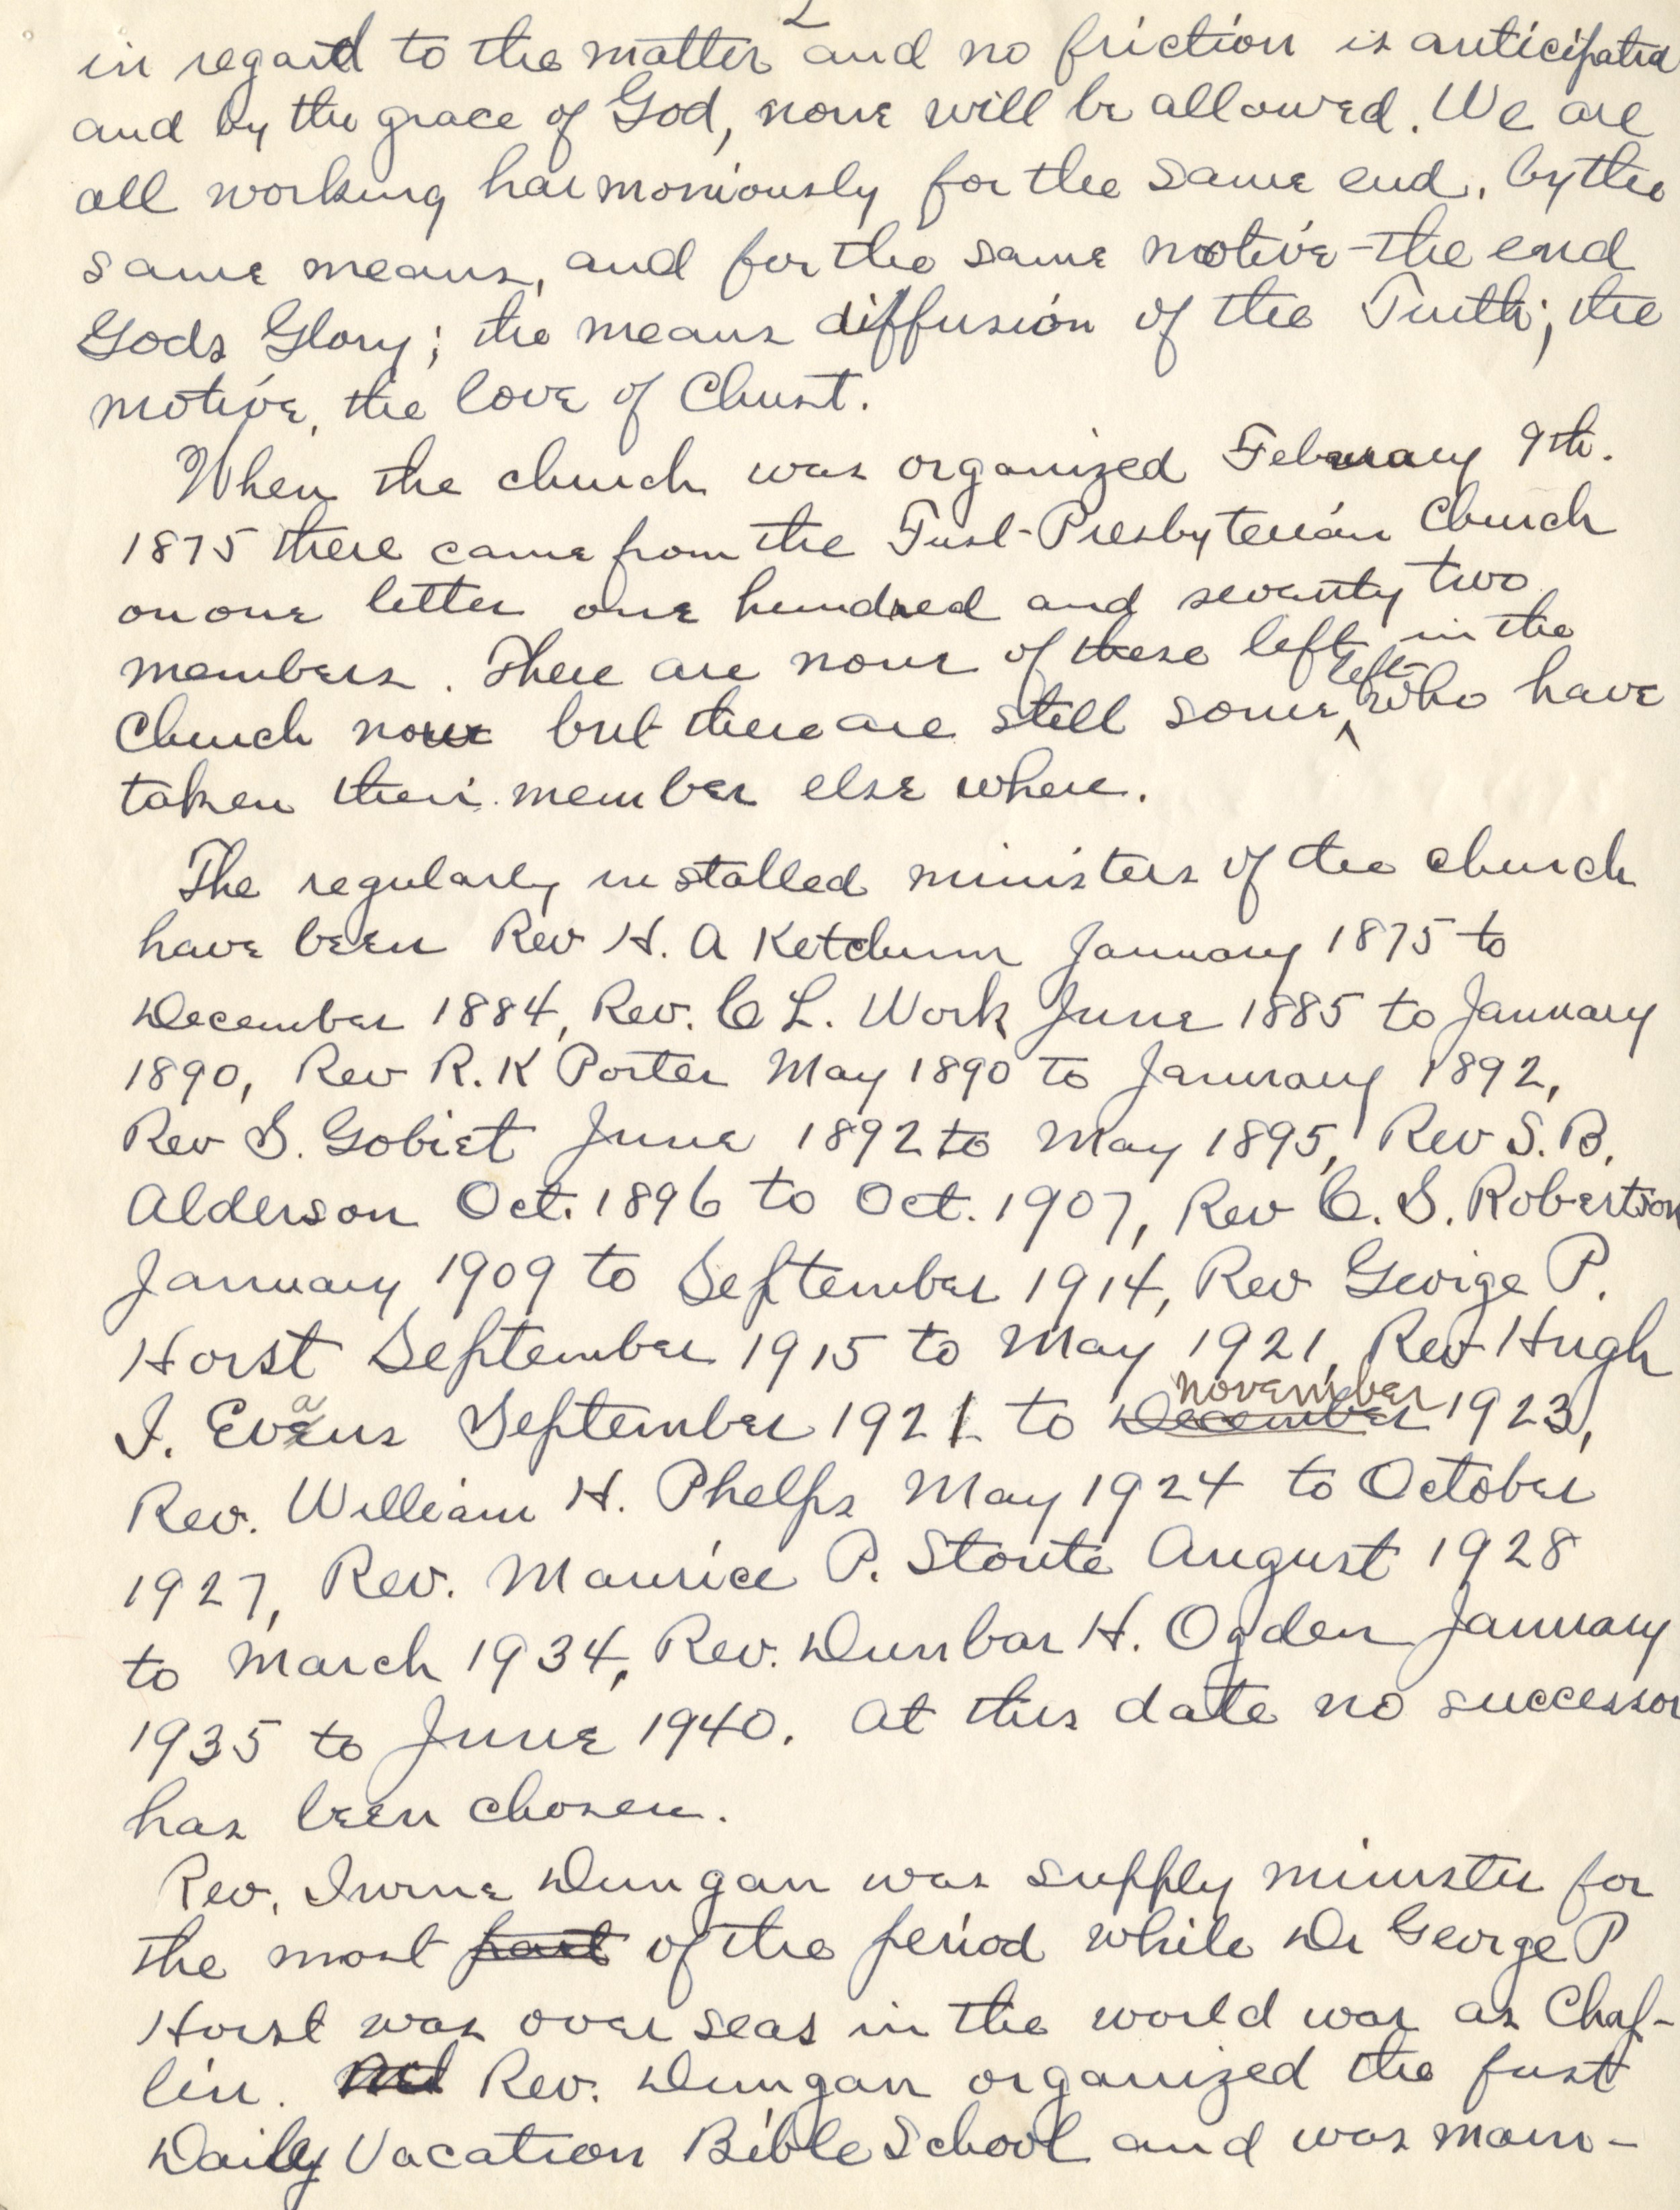 2
in regard to the matter and no friction is anticipated
and by the grace of God, none will be allowed. We are
all working harmoniously for the same end, by the
same means, and for the same motive - the end
Gods Glory; the means diffusion of the Truth; the
motive, the love of Christ.
When the church was organized February 9th.
1875 there came from the First-Presbyterian Church
on one letter one hundred and seventy two
members. There are none of these left in the
Church now but there are still some left who have
taken their member else where.
The regularly installed ministers of the church
have been Rev H. A Ketchum January 1875 to
December 1884, Rev. C L. Work June 1885 to January
1890, Rev R. K Porter May 1890 to January 1892,
Rev S. Gobiet June 1892 to May 1895, Rev S. B.
Alderson Oct. 1896 to Oct. 1907, Rev C. S. Robertson
January 1909 to September 1914, Rev George P.
Horst September 1915 to May 1921, Rev Hugh
I. Evans September 1921 to December november 1923,
Rev. William H. Phelps May 1924 to October
1927, Rev. Maurice P. Stoute August 1928
to March 1934, Rev. Dunbar H. Ogden January
1935 to June 1940. At this date no successor
has been chosen.
Rev. Irvine Dungan was supply minister for
the most part of the period while Dr George P
Horst was over seas in the world war as Chap-
lin. Rev. Dungan organized the first
Daily Vacation Bible School and was main-